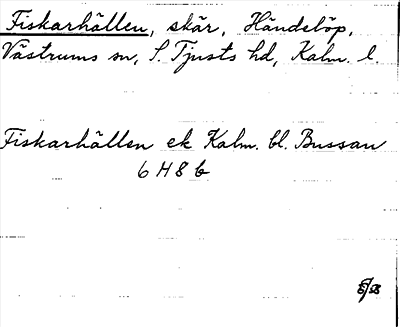 Fiskarhällen, skär, Händelöp,
Västrums sn, S. Tjusts hd, Kalm. l.
Fiskarhällen ek Kalm. bl. Bussan
6 H 8 b